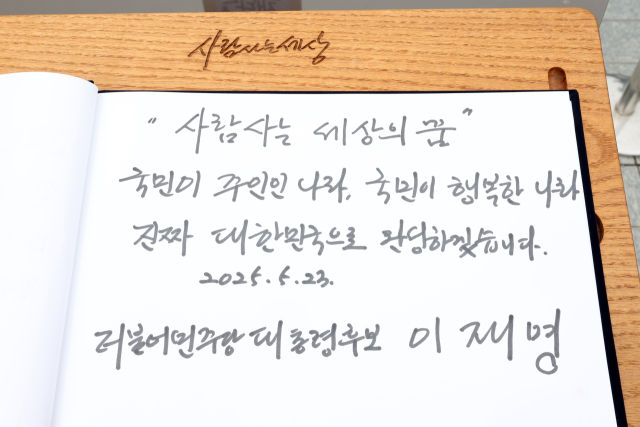 사람사는세상
"사람사는 세상의 꿈"
국민이 주인인 나라, 국민이 행복한 나라
진짜 대한민국으로 완당하겠습니다.
2025. 5. 23.
더불어민주당 대통령후보 이재명